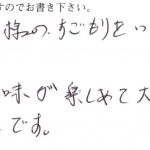 すのでお書き下さい。
様の、すごもりをい
味が楽しめて大
です。